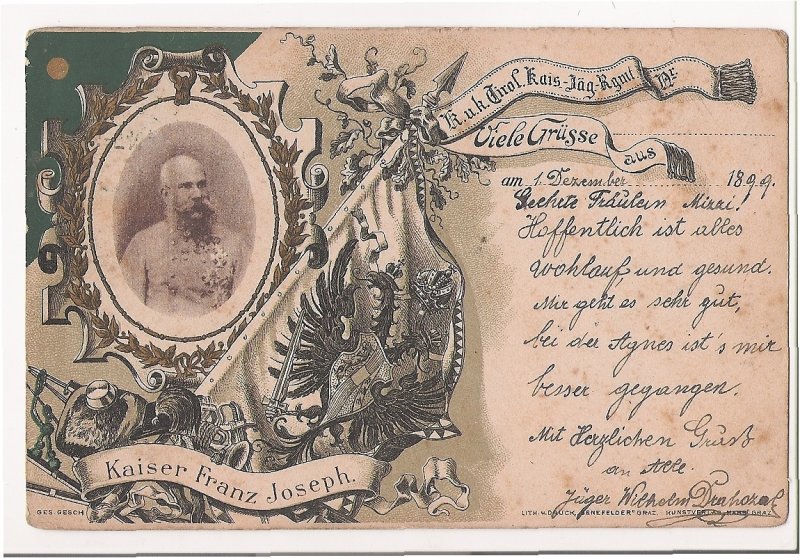 K.u.k. Tirol. Kais-Jäg-Rgmt Nr.
Viele Grüsse
aus
am 1. Dezember 1899.
Geehrte Fräulein Mizzi!
Hoffentlich ist alles
wohlauf, und gesund.
Mir geht es sehr gut,
bei der Agnes ist's mir
besser gegangen.
Mit Herzlichen Gruß
an Alle.
Jäger Wilhelm
Kaiser Franz Joseph.
GES. GESCH
LITH. u. DRUCK, "SENEFELDER" GRAZ. KUNSTVERLAG GRAZ